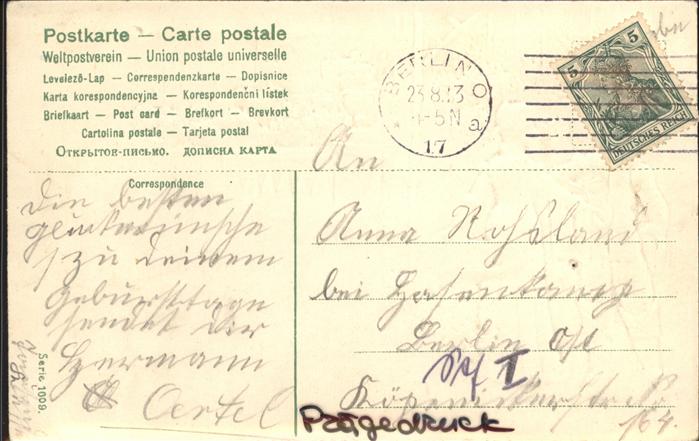 Postkarte — Carte postale
Weltpostverein — Union postale universelle
Levelező-Lap — Correspondenzkarte — Dopisnice
Karta korespondencyjna — Korespondenční lístek
Briefkaart — Post card — Brefkort — Brevkort
Cartolina postale — Tarjeta postal
Открытое-письмо. дописна карта
BERLIN O
23.8.13
4-5N
a
17
5
5
DEUTSCHES REICH
Correspondence
Die besten
glückwünsche
zu deinem
Geburtstage
sendet dir
Hermann
Oertel
Serie 1009.
An
Anna Rohsland
bei
Berlin Ost
Köpenickerstr.
164.
I
Prägedruck